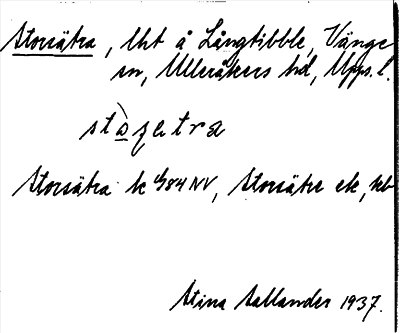 Storsätra, lht å Långtibble, Vänge
sn, Ulleråkers hd, Upps. l.
Storsätra k 4/984 NV, Storsätre ek,
Stina Sallander 1937.